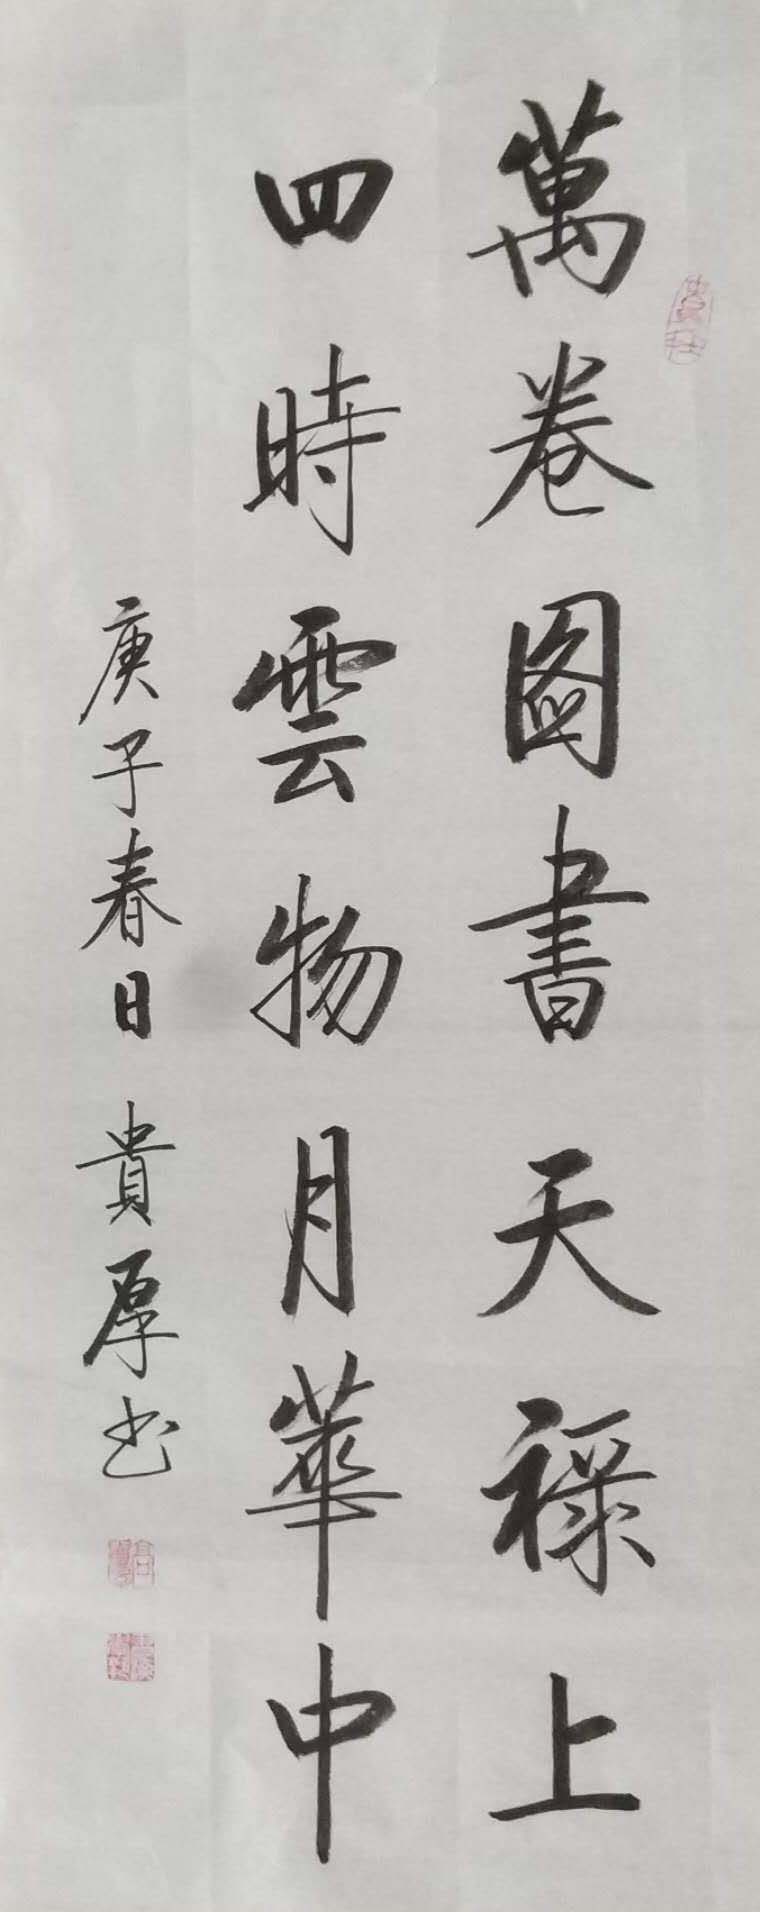 萬卷圖書天祿上
四時雲物月華中
庚子春日 貴厚书